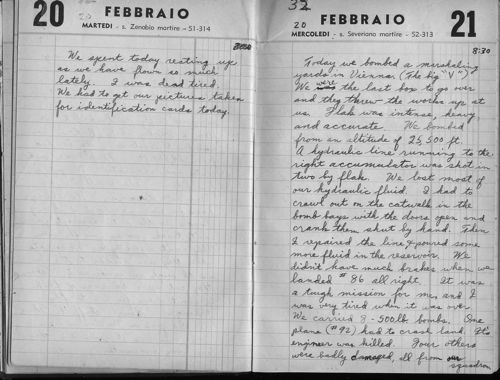 20
20
FEBBRAIO
MARTEDÌ - s. Zenobio martire - 51-314
We spent today resting up
as we have flown so much
lately. I was dead tired.
We had to get our pictures taken
for identification cards today.
32
20
FEBBRAIO
21
MERCOLEDÌ - s. Severiano martire - 52-313
8:30
Today we bombed a marshaling
yards in Vienna (The big "V")
We were the last box to go over
and they threw the works up at
us. Flak was intense, heavy,
and accurate. We bombed
from an altitude of 25,500 ft.
A hydraulic line running to the
right accumulator was shot in
two by flak. We lost most of
our hydraulic fluid. I had to
crawl out on the catwalk in the
bomb bays with the doors open and
crank them shut by hand. Then
I repaired the line & poured some
more fluid in the reservoir. We
didn't have much brakes when we
landed # 86 all right. It was
a tough mission for me, and I
was very tired when it was over
We carried 8 - 500 lb. bombs. One
plane (#92) had to crash land. It's
engineer was killed. Four others
were badly damaged, all from our
squadron